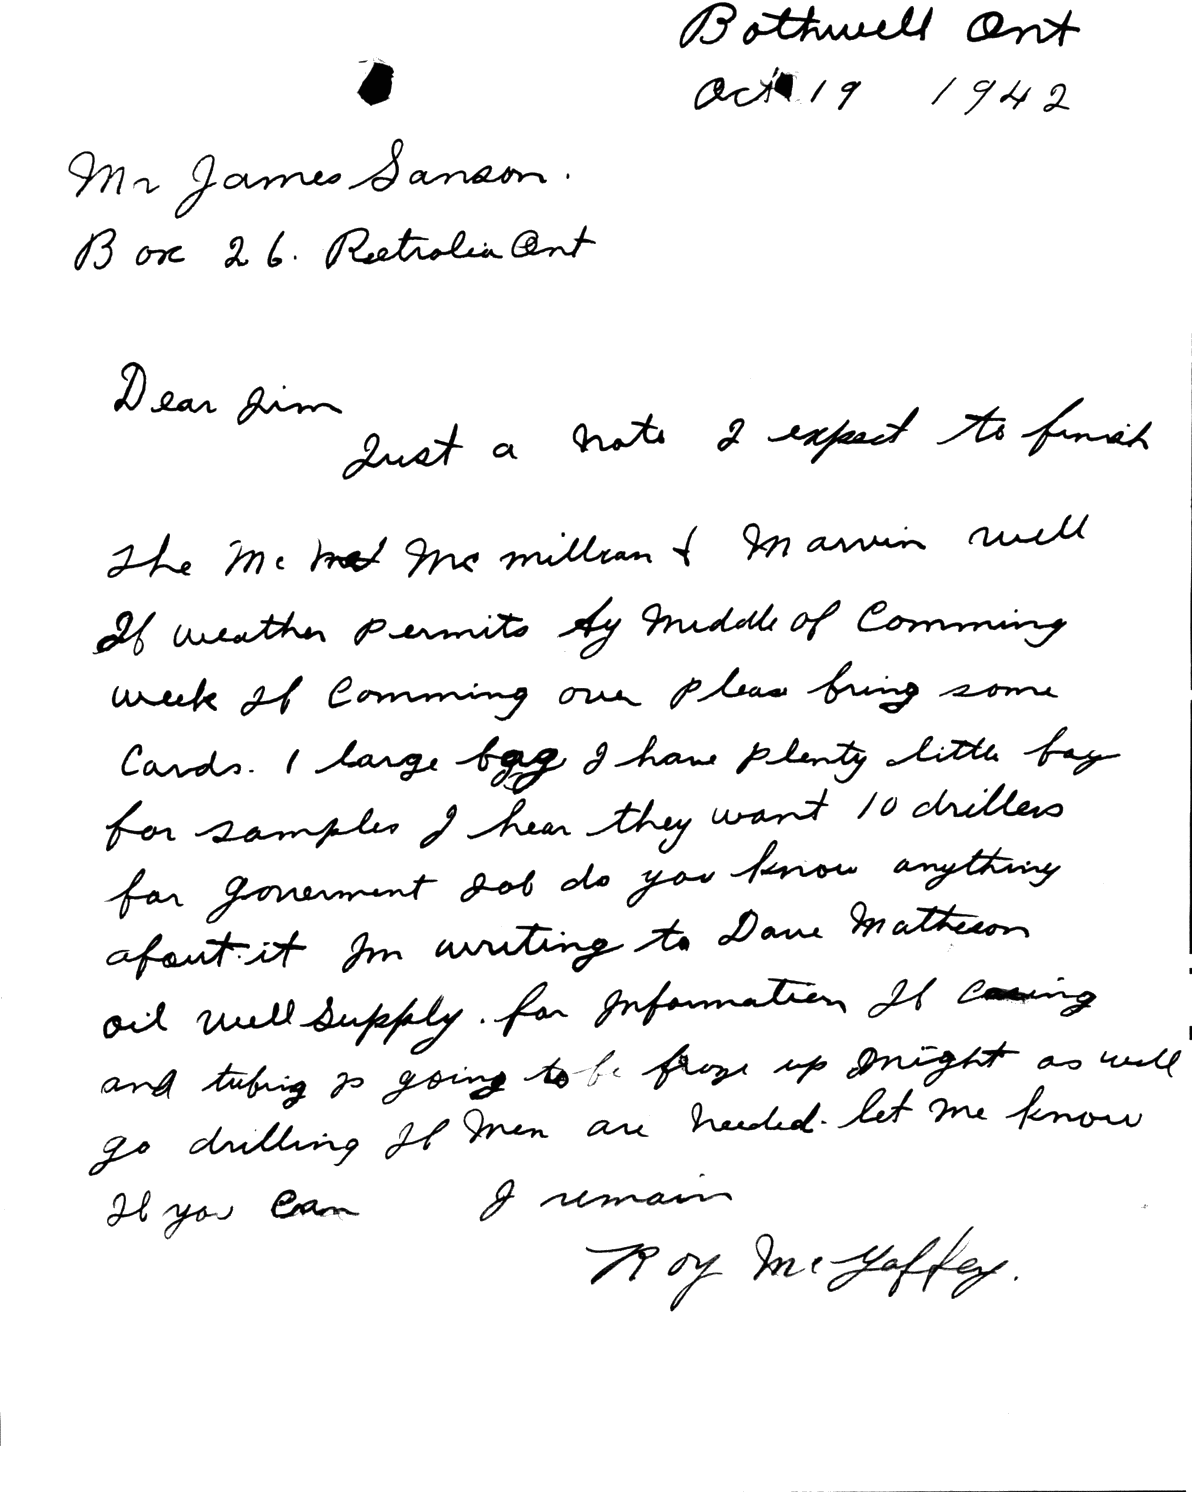 Bothwell Ont
Oct 19 1942
Mr James Sanson.
Box 26. Peetrolia Ont
Dear Jim
Just a note I expect to finish
The Mc McMillian & Marvin well
If weather permits by Middle of Comming
week If Comming over pleas bring some
Cards. 1 large bag I have plenty little bag
for samples I hear they want 10 drillers
for Goverment Job do you know anything
about it Im writing to Dave Matheson
oil well supply. for Information If casing
and tubing is going to be froze up might as well
go drilling If Men are needed. let me know
If you can I remain
Roy McGaffey.